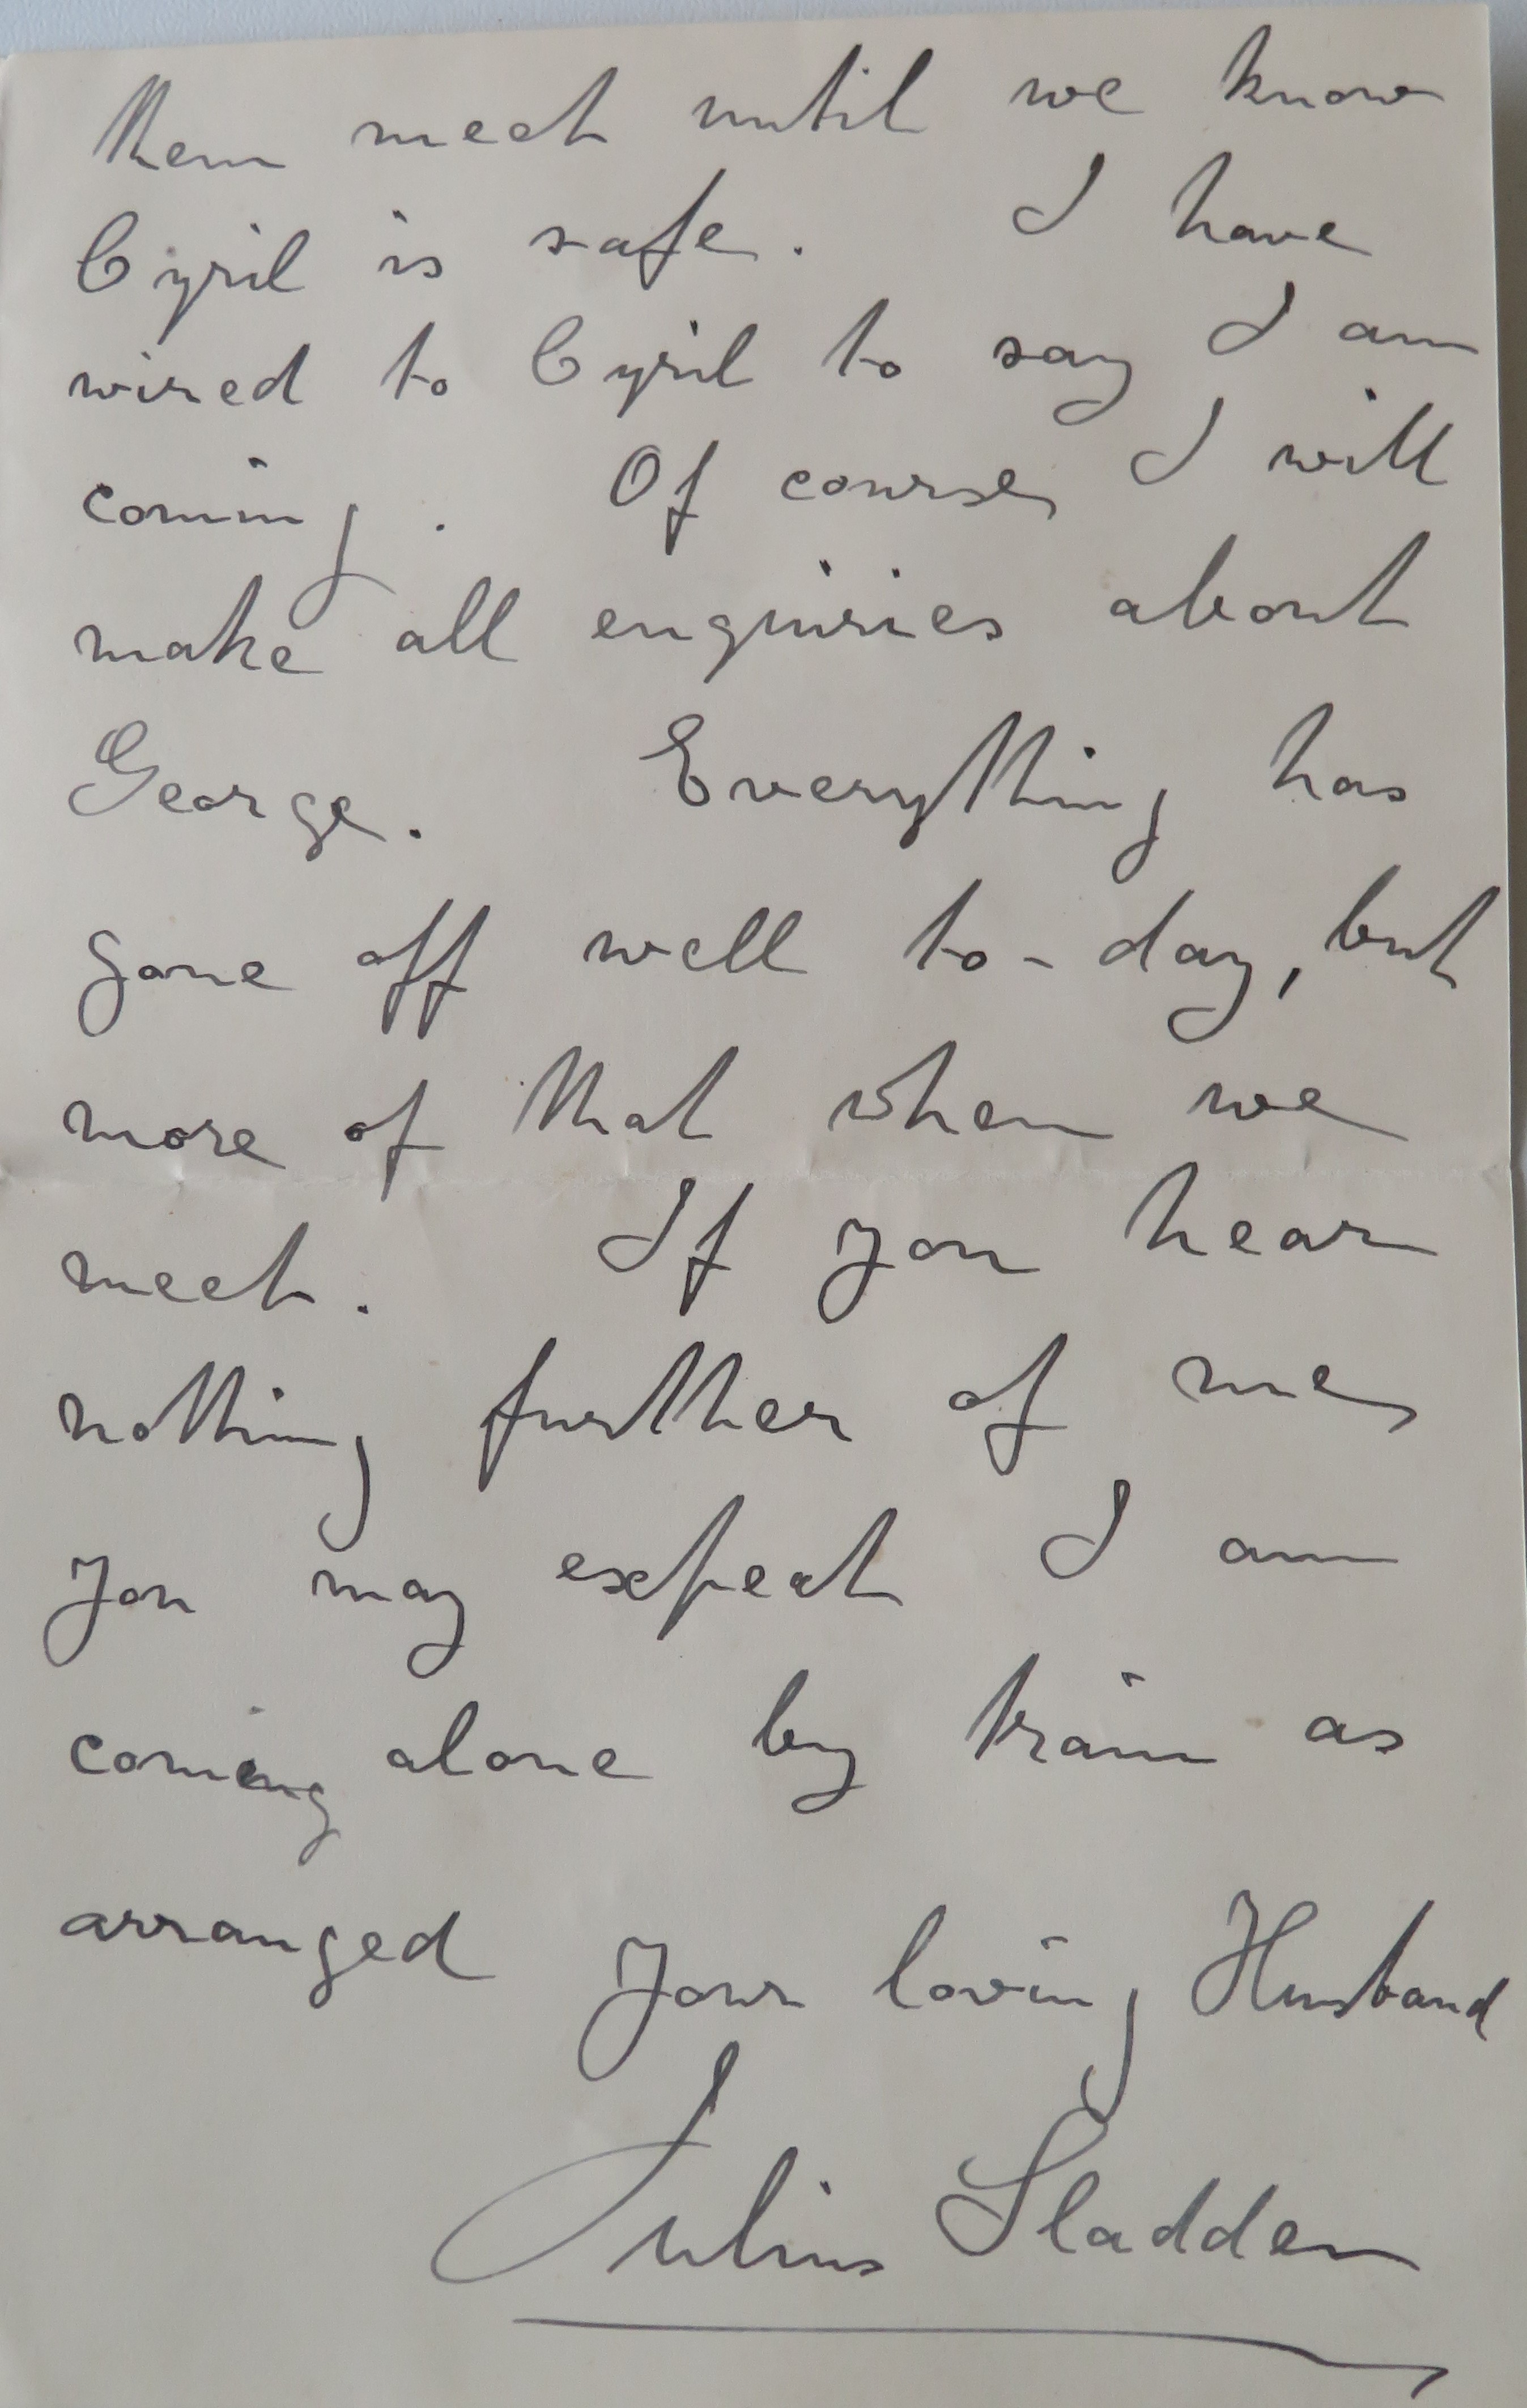 them meet until we know
Cyril is safe. I have
wired to Cyril to say I am
coming. Of course, I will
make all enquiries about
George. Everything has
gone off well to-day, but
more of that when we
meet. If you hear
nothing further of me,
you may expect I am
coming alone by train as
arranged Your loving Husband
Julius Sladden